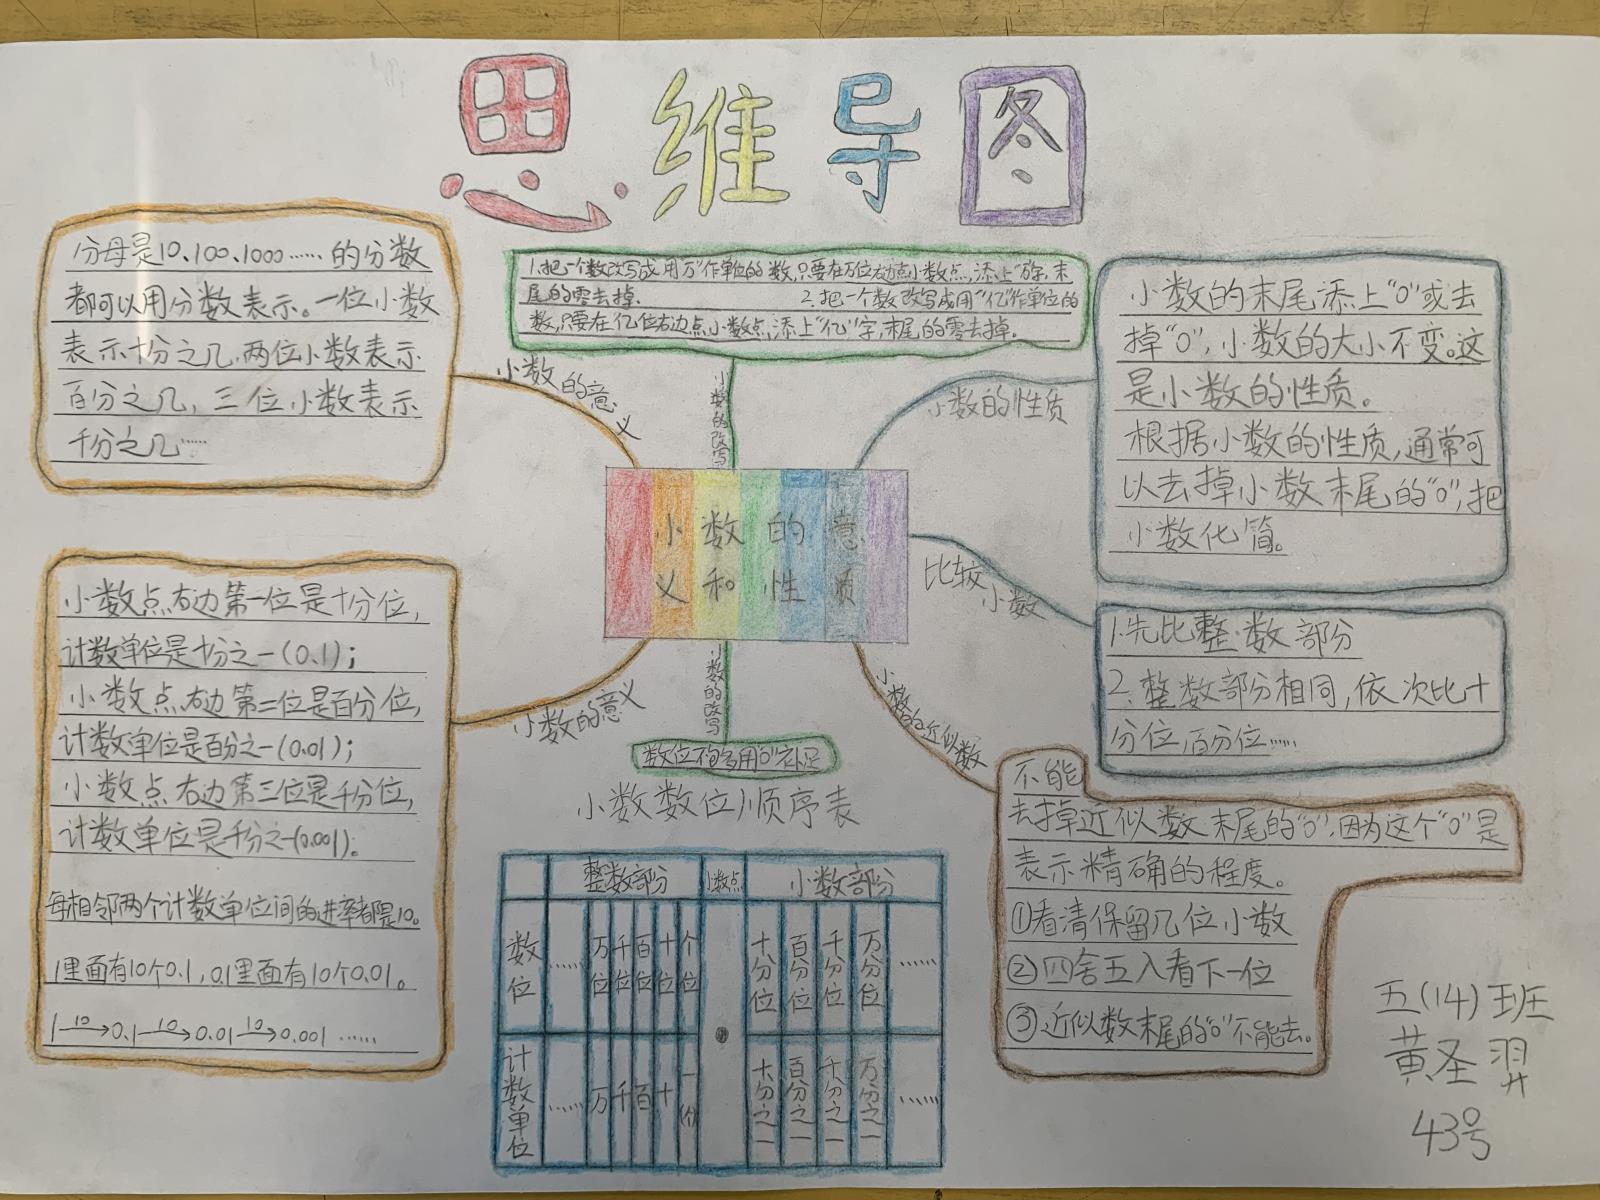 思维导图
分母是10、100、1000……的分数
都可以用分数表示。一位小数
表示十分之几,两位小数表示
百分之几,三位小数表示
千分之几……
小数的意义
1.把一个数改写成用"万"作单位的数,只要在万位右边点小数点,添上"万"字,末
尾的零去掉. 2.把一个数改写成用"亿"作单位的
数,只要在亿位右边点小数点,添上"亿"字,末尾的零去掉.
小数的改写
小数的末尾添上"0"或去
掉"0",小数的大小不变。这
是小数的性质。
根据小数的性质,通常可
以去掉小数末尾的"0",把
小数化简。
小数的性质
小数的意
义和性质
比较小数
1.先比整数部分
2.整数部分相同,依次比十
分位,百分位……
小数点右边第一位是十分位,
计数单位是十分之一(0.1);
小数点右边第二位是百分位,
计数单位是百分之一(0.01);
小数点右边第三位是千分位,
计数单位是千分之一(0.001)。
每相邻两个计数单位间的进率都是10。
1里面有10个0.1,0.1里面有10个0.01。
1 10→0.1 10→0.01 10→0.001 ……
小数的意义
小数的改写
数位不够用"0"补足
小数的近似数
不能
去掉近似数末尾的"0",因为这个"0"是
表示精确的程度。
①看清保留几位小数
②四舍五入看下一位
③近似数末尾的"0"不能去。
小数数位顺序表
整数部分 小数点 小数部分
数位 …… 万位 千位 百位 十位 个位 · 十分位 百分位 千分位 万分位 ……
计数单位 …… 万 千 百 十 一(个) 十分之一 百分之一 千分之一 万分之一 ……
五(14)班
黄圣羿
43号